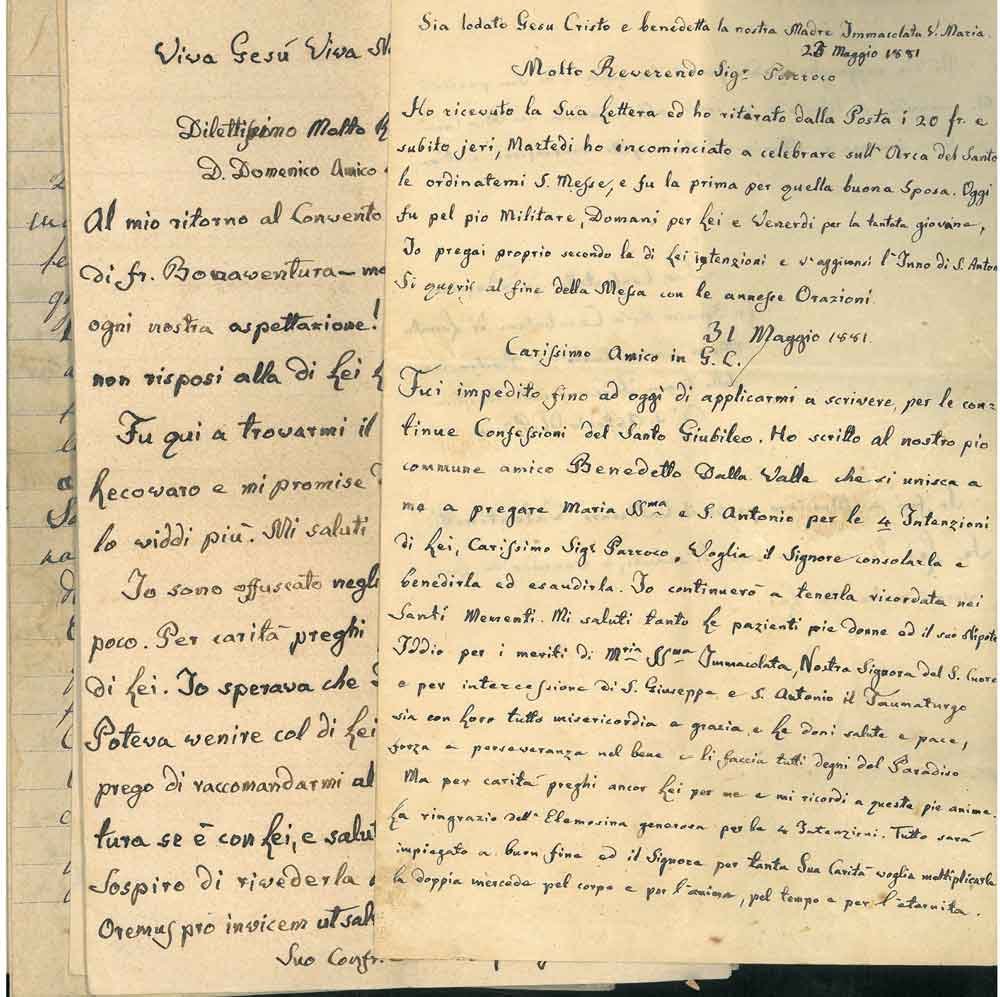 Viva Gesù Viva
Dilettissimo Molto
D. Domenico Amico
Al mio ritorno al Convento
di fr. Bonaventura
ogni nostra aspettazione!
non risposi alla di Lei
Fu qui a trovarmi il
Recovaro e mi promise
lo viddi più. Mi saluti
Io sono offuscato negli
poco. Per carità preghi
di Lei. Io sperava che
Poteva venire col di Lei
prego di raccomandarmi al
tura se è con Lei, e salut
Sospiro di rivederla
Oremus pro invicem ut sal
Suo Confr.
Sia lodato Gesu Cristo e benedetta la nostra Madre Immacolata V. Maria.
Maggio 1881
Molto Reverendo Sigr Parroco
Ho ricevuto la Sua Lettera ed ho ritirato dalla Posta i 20 fr. e
subito jeri, Martedi ho incominciato a celebrare sull' Arca del Santo
le ordinatemi S. Messe, e fu la prima per quella buona Sposa. Oggi
fu pel pio Militare, Domani per Lei e Venerdi per la tantata giovane,
Io pregai proprio secondo la di Lei intenzioni e v'aggiunsi l'Inno di S. Anton
Si quęris al fine della Messa con le annesse Orazioni.
31 Maggio 1881.
Carissimo Amico in G. C.
Fui impedito fino ad oggi di applicarmi a scrivere, per le con-
tinue Confessioni del Santo Giubileo. Ho scritto al nostro pio
commune amico Benedetto Dalla Valle che si unisca a
me a pregare Maria SSma e S. Antonio per le 4 Intenzioni
di Lei, Carissimo Sigr Parroco. Voglia il Signore consolarla e
benedirla ed esaudirla. Io continuerò a tenerla ricordata nei
Santi Mementi. Mi saluti tanto le pazienti pie donne ed il suo Nipote
Iddio per i meriti di Mria SSma Immacolata, Nostra Signora del S. Cuore
e per intercessione di S. Giuseppe e S. Antonio il Taumaturgo
sia con Loro tutto misericordia e grazia e Le doni salute e pace,
forza e perseveranza nel bene e li faccia tutti degni del Paradiso
Ma per carità preghi ancor Lei per me e mi ricordi a queste pie anime.
La ringrazio dell' Elemosina generosa per le 4 Intenzioni. Tutto sarà
impiegato a buon fine ed il Signore per tanta Sua Carità voglia moltiplicarle
la doppia mercede pel corpo e per l'anima, pel tempo e per l'eternità.